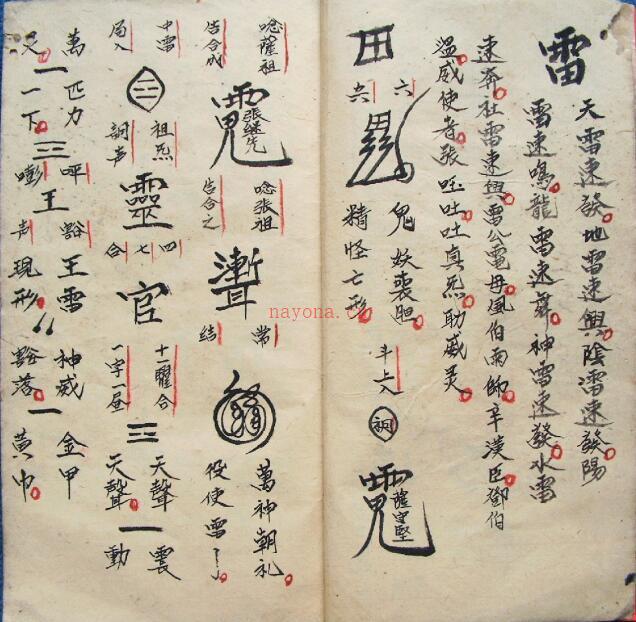 雷
天雷速發地雷速興陰雷速發陽
雷速鳴龍雷速舞神雷速發水雷
速奔社雷速興雷公電母風伯雨師辛漢臣鄧伯
溫威使者張 吐吐真炁助威灵
田
六
鬼妖丧胆
精怪亡形
薩守堅
唸薩祖
告合成
張継先
唸張祖
告合之
聻
常
結
萬神朝礼
役使雷
中雷
局入
祖炁
詞声
靈
四七合
官
十一曜合
一字一届
三
天聲
天聲
一
震動
萬匹力
一
一下
三
呯
嘭
王
豁声
王雷
現形
神威
豁落
一
金甲
黃巾
nayona.cn